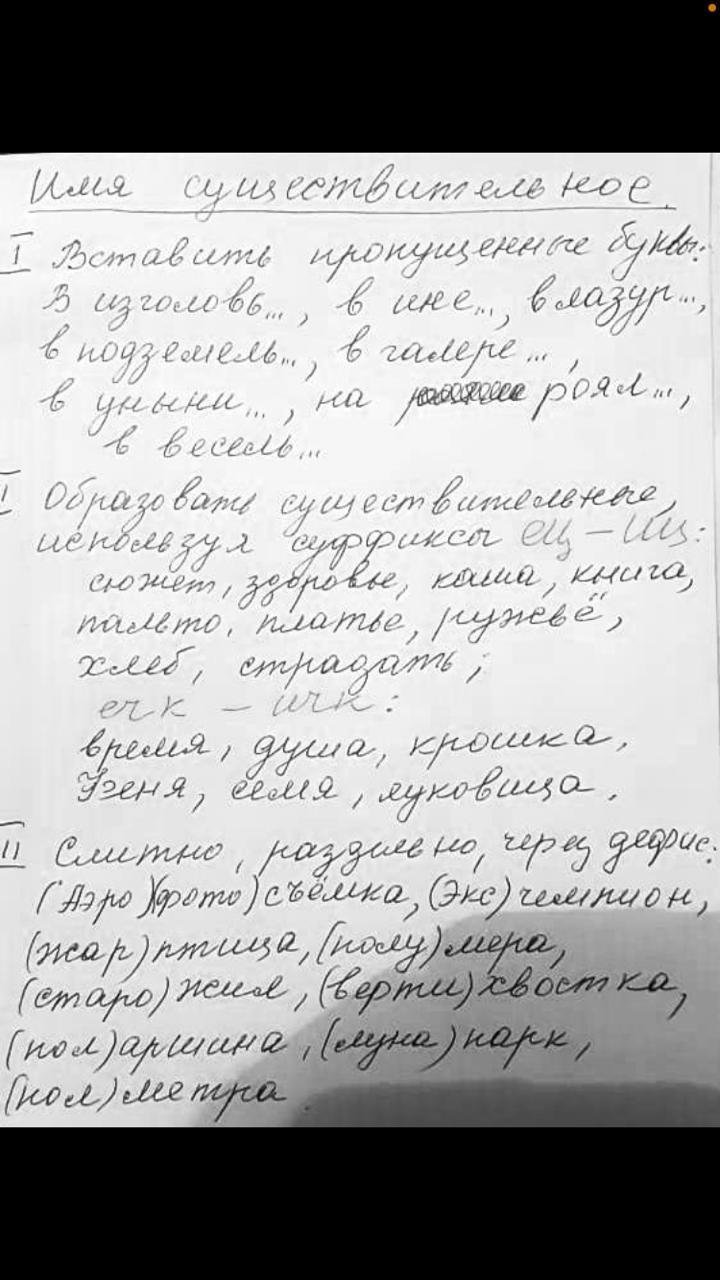 Имя существительное.
I Вставить пропущенные буквы:
В изголовь..., в ине..., в лазур...,
в подземель..., в галере...,
в уныни..., на роял...,
в весель...
I Образовать существительные,
используя суффиксы ец – иц:
сюжет, здоровье, каша, книга,
пальто, платье, ружьё,
хлеб, страдать;
ечк – ичк:
время, душа, крошка,
Феня, семя, луковица.
II Слитно, раздельно, через дефис:
(Аэро)(фото)съёмка, (Экс)чемпион,
(жар)птица, (полу)мера,
(старо)жил, (верти)хвостка,
(пол)аршина, (луна)парк,
(пол)метра